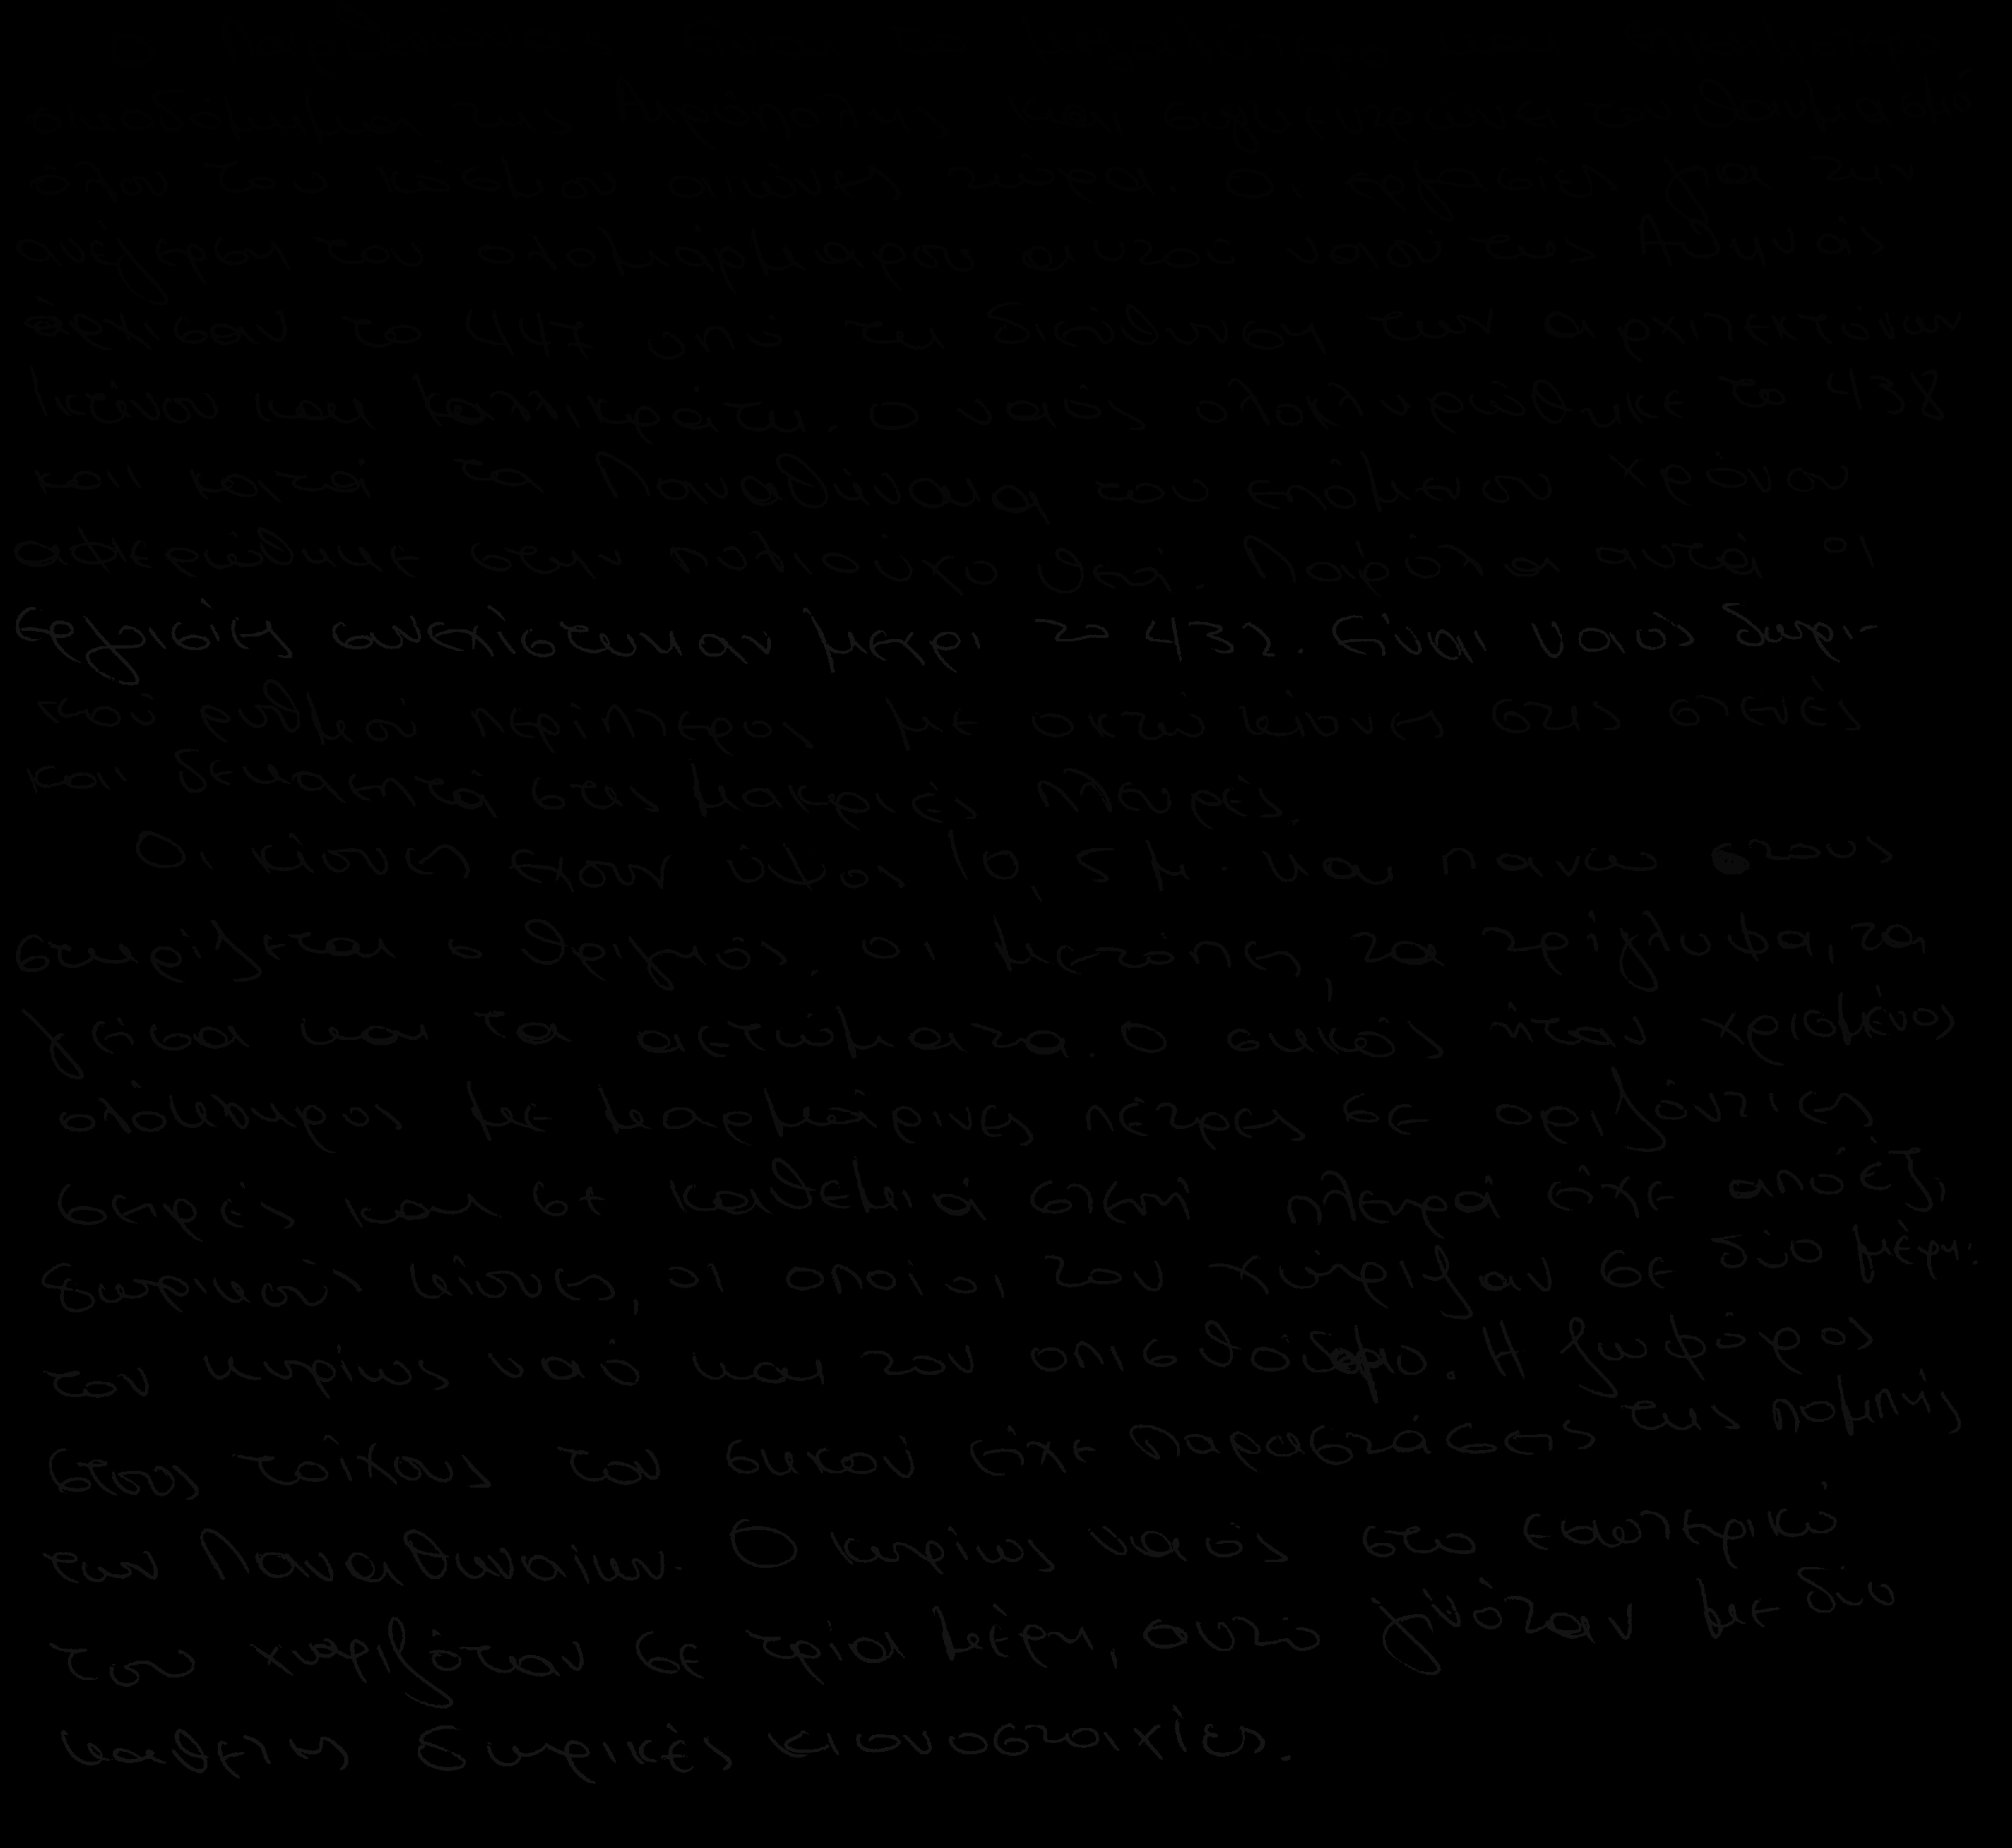 οικοδόμημα της Ακρόπολης και συγκεντρώνει τον θαυμασμό
όλου του κόσμου αιώνες τώρα. Οι εργασίες για την
ανέγερση του ολομάρμαρου αυτού ναού της Αθηνάς
άρχισαν το 447 υπό τη διεύθυνση των αρχιτεκτόνων
Ικτίνου και Καλλικράτη. Ο ναός ολοκληρώθηκε το 438
και κατά τα Παναθήναια του επόμενου χρόνου
αφιερώθηκε στην πολιούχο θεά. Παρόλα αυτά οι
εργασίες συνεχίστηκαν μέχρι το 432. Είναι ναός δωρι-
κού ρυθμού περίπτερος με οκτώ κίονες στις στενές
και δεκαεπτά στις μακριές πλευρές.
Οι κίονες έχουν ύψος 10,5 μ. και πάνω τους
στηρίζεται ο θριγκός, οι μετόπες, τα τρίγλυφα, τα
γείσα και τα αετώματα. Ο σηκός ήταν χτισμένος
ολόκληρος με μαρμάρινες πέτρες σε οριζόντιες
σειρές και σε καθεμιά στενή πλευρά είχε από έξι
δωρικούς κίονες, οι οποίοι τον χώριζαν σε δύο μέρη:
τον κυρίως ναό και τον οπισθόδομο. Η ζωφόρος
στους τοίχους του σηκού είχε παραστάσεις της πομπής
των Παναθηναίων. Ο κυρίως ναός στο εσωτερικό
του χωριζόταν σε τρία μέρη, αυτό γινόταν με δύο
κάθετες δωρικές κιονοστοιχίες.